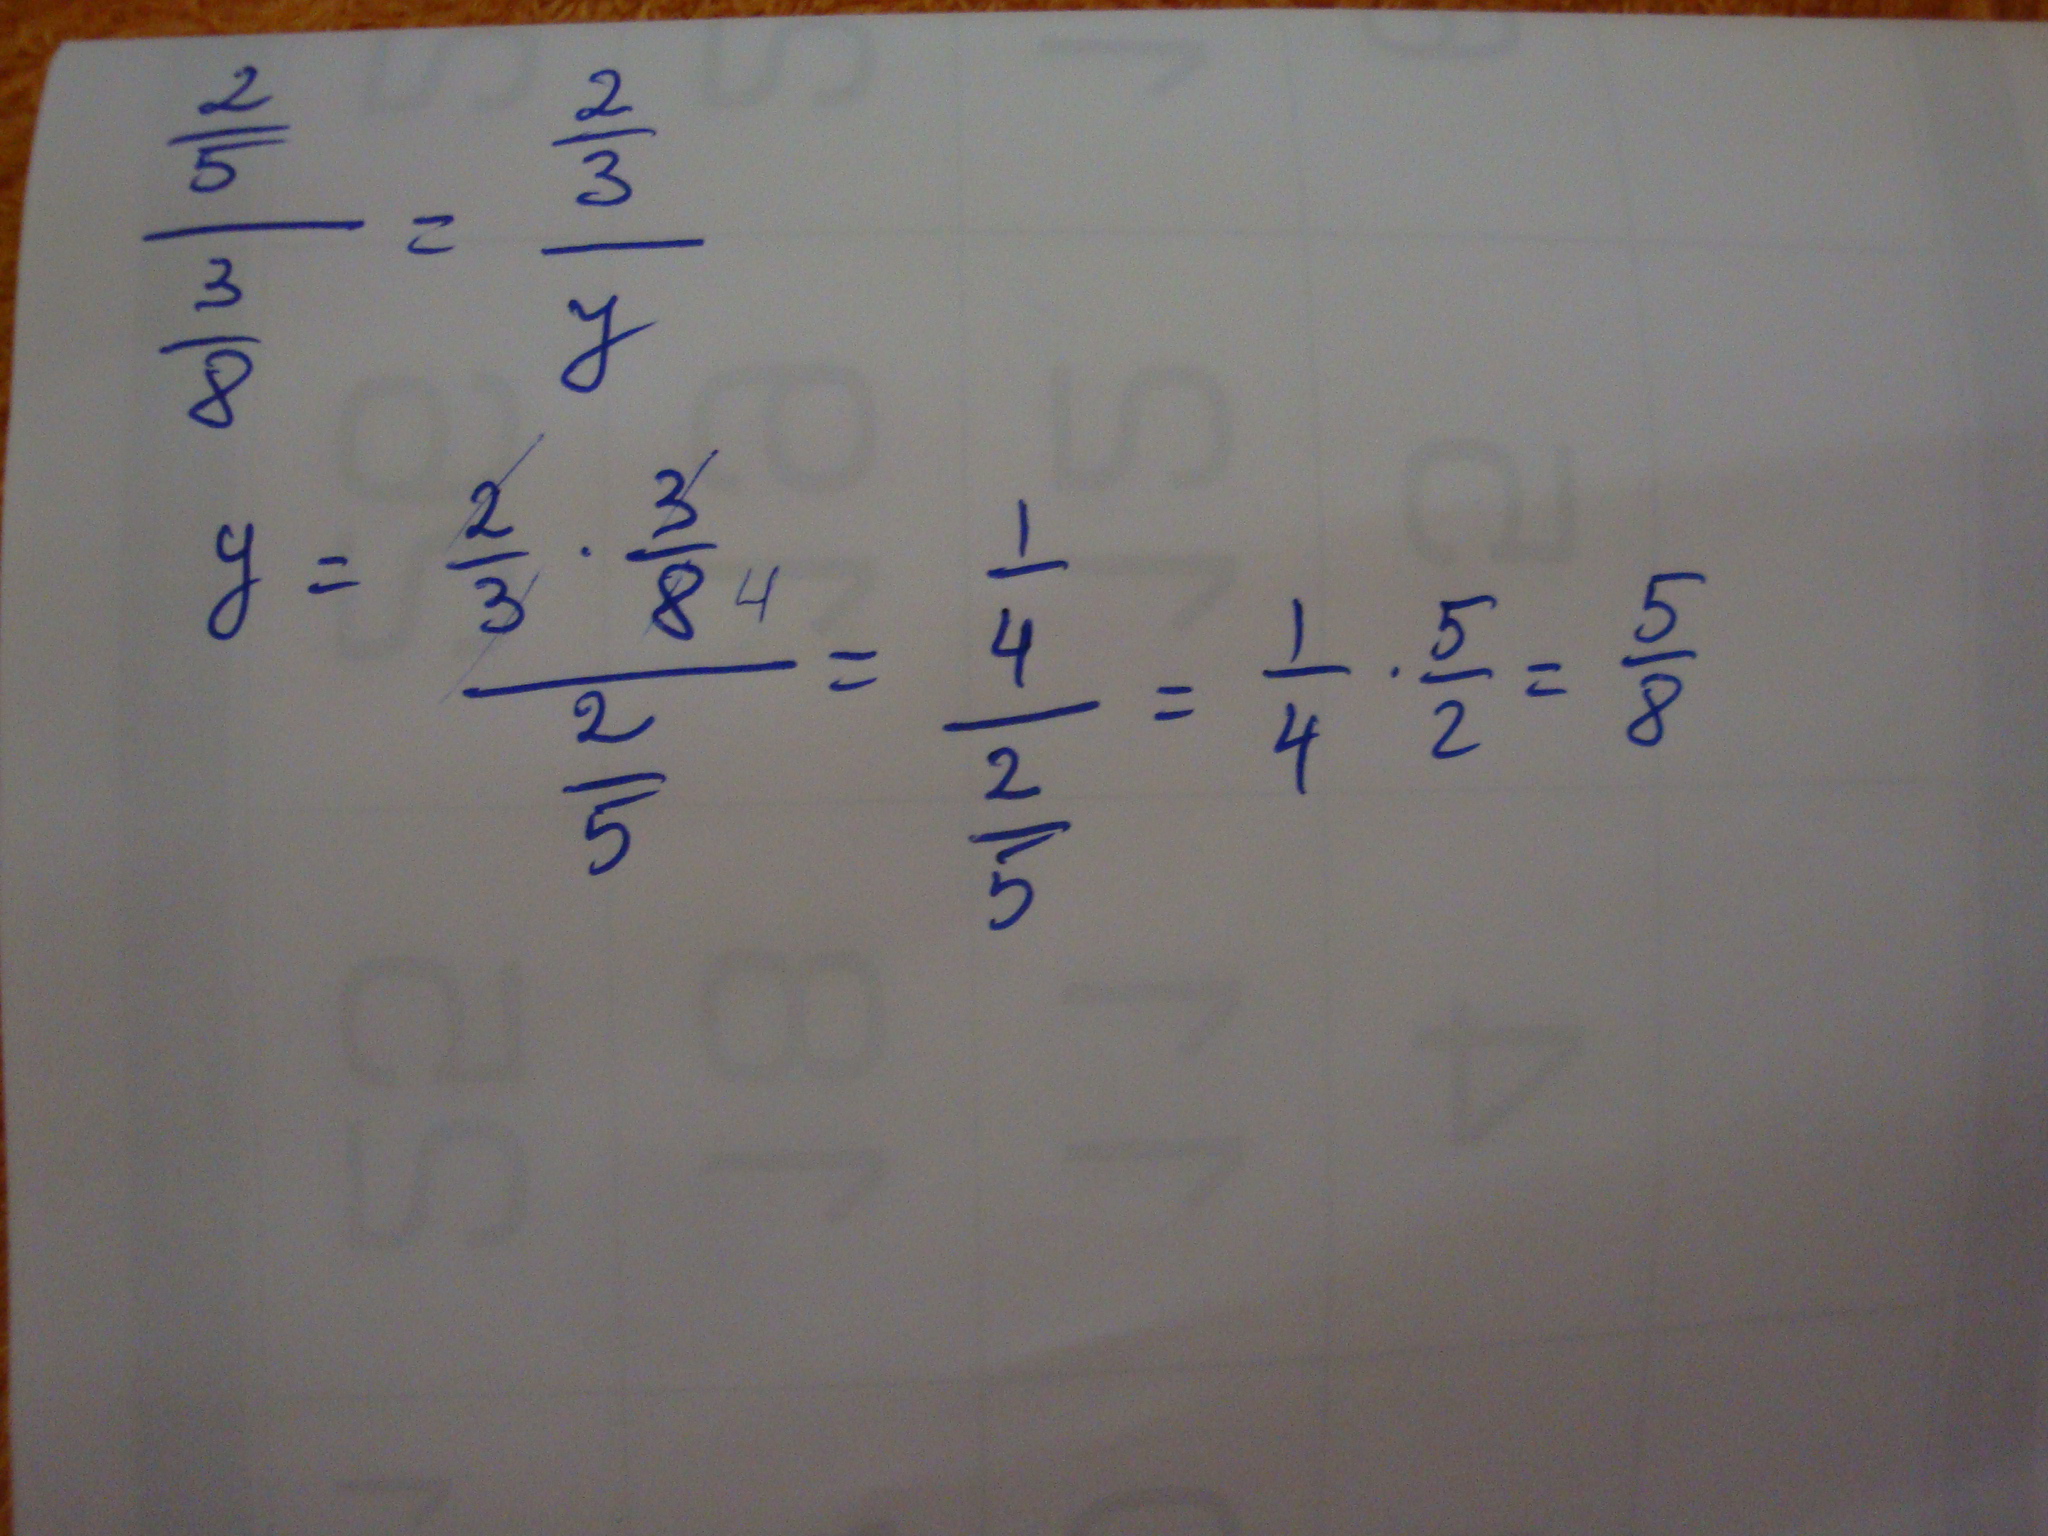 2/5 / 3/8 = 2/3 / y
y = 2/3 · 3/8 4 / 2/5 = 1/4 / 2/5 = 1/4 · 5/2 = 5/8